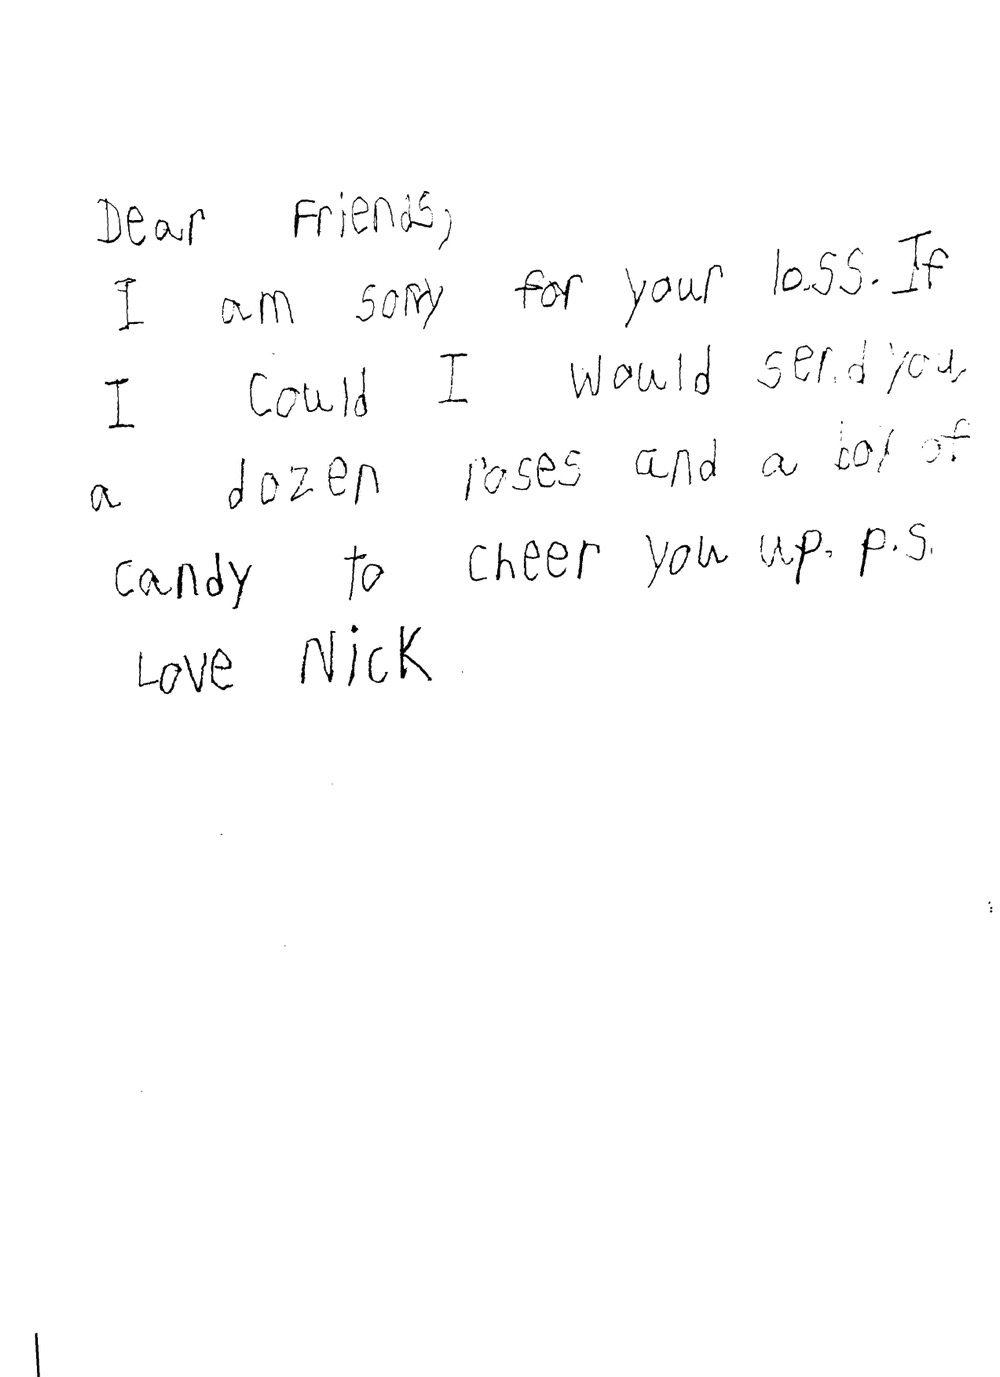 Dear Friends,
I am sorry for your loss. If
I Could I would send you
a dozen roses and a box of
candy to cheer you up. p.s.
Love Nick